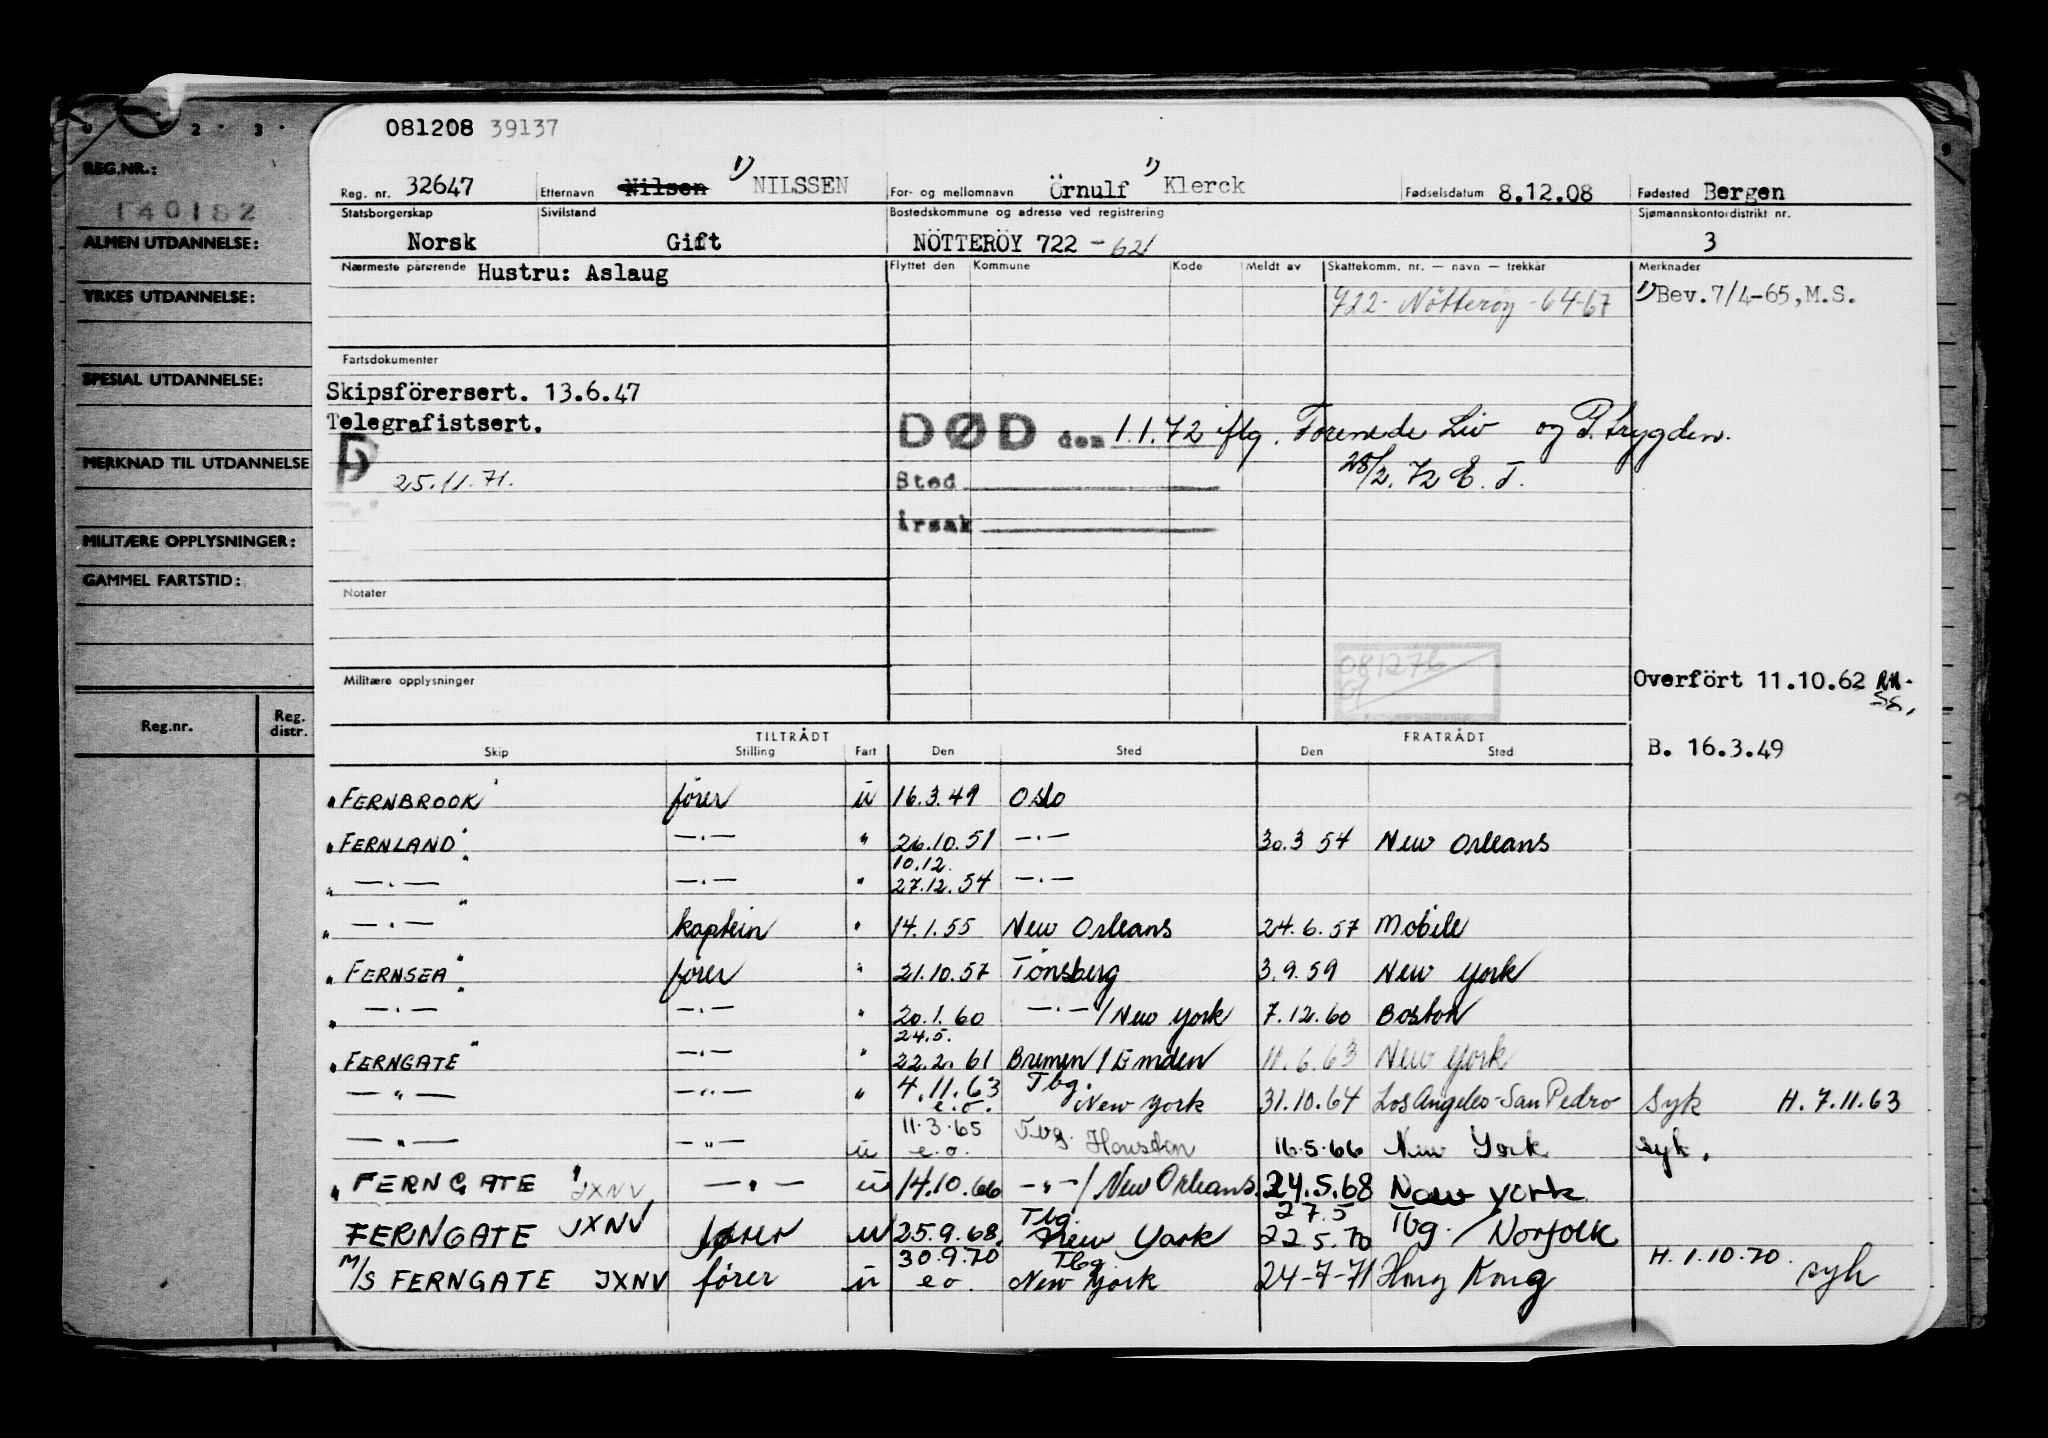 0 2 . 3 .
REG.NR.:
140182
ALMEN UTDANNELSE:
YRKES UTDANNELSE:
SPESIAL UTDANNELSE:
MERKNAD TIL UTDANNELSE
MILITÆRE OPPLYSNINGER:
GAMMEL FARTSTID:
Reg.nr. Reg. distr.
081208 39137
Reg. nr. 32647 Etternavn Nilsen 1) NILSSEN For- og mellomnavn Örnulf 1) Klerck Fødselsdatum 8.12.08 Fødested Bergen
Statsborgerskap Sivilstand Bostedskommune og adresse ved registrering Sjømannskontordistrikt nr.
Norsk Gift NÖTTERÖY 722 - 62 3
Nærmeste pårørende Hustru: Aslaug Flyttet den Kommune Kode Meldt av Skattekomm. nr. — navn — trekkår Merknader
722 - Nötteröy - 64-67 1) Bev.7/4-65, M.S.
Fartsdokumenter
Skipsförersert. 13.6.47
Telegrafistsert.
DØD den 1.1.72 iflg. Forenede Liv og P. trygden.
P 25.11.71.
28/2. 72 E. T.
Sted
Årsak
Notater
081276
Militære opplysninger Overfört 11.10.62
TILTRÅDT FRATRÅDT
Skip Stilling Fart Den Sted Den Sted B. 16.3.49
"FERNBROOK" fører u 16.3.49 Oslo
"FERNLAND" —.— " 26.10.51 —.— 30.3 54 New Orleans
10.12.
" —.— " —.— " 27.12.54 —.—
" —.— " kaptein " 14.1.55 New Orleans 24.6.57 Mobile
"FERNSEA" fører " 21.10.57 Tönsberg 3.9.59 New York
" —.— " —.— " 20.1.60 —.—/New York 7.12.60 Boston
24.5.
"FERNGATE" —.— " 22.2.61 Bremen/Emden 11.6.63 New York
— " — — " — " 4.11.63 e.o. Tbg. New York 31.10.64 Los Angeles-San Pedro Syk H. 7.11.63
— " — — " — u 11.3.65 e.o. Tbg. Houston 16.5.66 New York syk.
"FERNGATE" JXNV — " — u 14.10.66 — " —/New Orleans 24.5.68 New York
FERNGATE JXNV fører u 25.9.68. Tbg. New York 27.5 22.5.70 Tbg. / Norfolk
M/S FERNGATE JXNV fører u 30.9.70 e o. Tbg New York 24-7-71 Hong Kong H. 1.10.70. syk